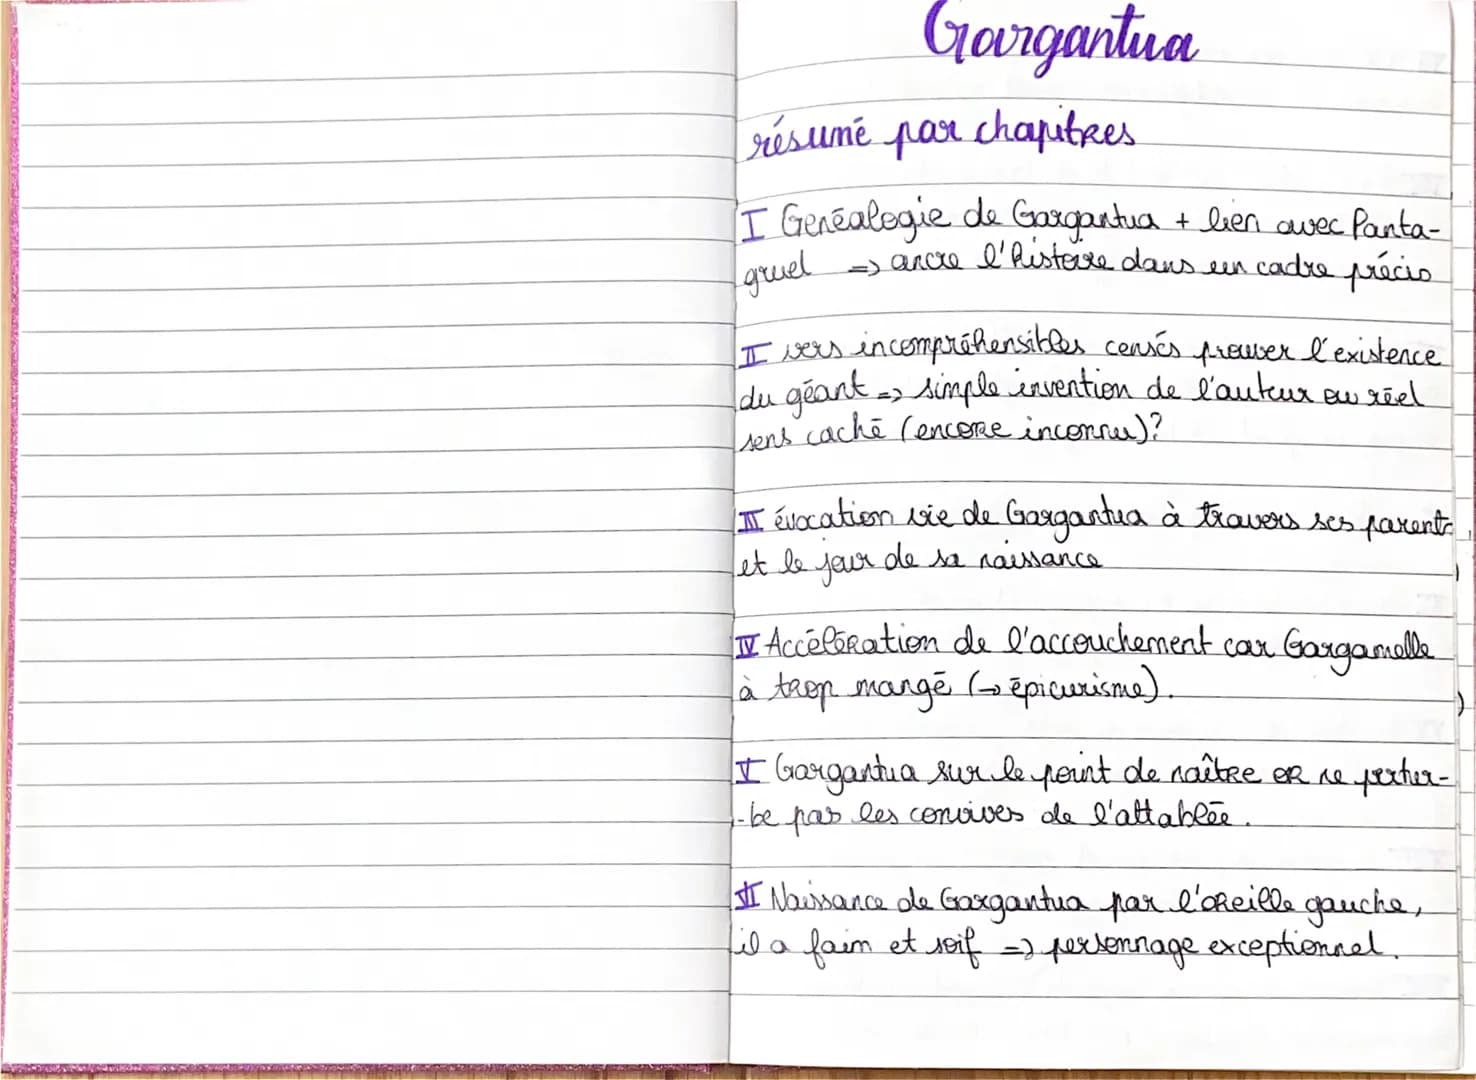 Gargantua
résumé par chapitres
I Genéalogie de Gargantua + lien avec Panta-
gruel => ancre l'histoire dans un cadre précis
II vers incompréhensibles censés prouver l'existence
du géant => simple invention de l'auteur ou réel
sens caché (encore inconnu)?
III évocation vie de Gargantua à travers ses parents
et le jour de sa naissance
IV Accélération de l'accouchement car Gargamelle
à trop mangé (→ épicurisme).
V Gargantua sur le point de naître OR ne pertur-
-be pas les convives de l'attablée.
VI Naissance de Gargantua par l'oreille gauche,
il a faim et soif => personnage exceptionnel.